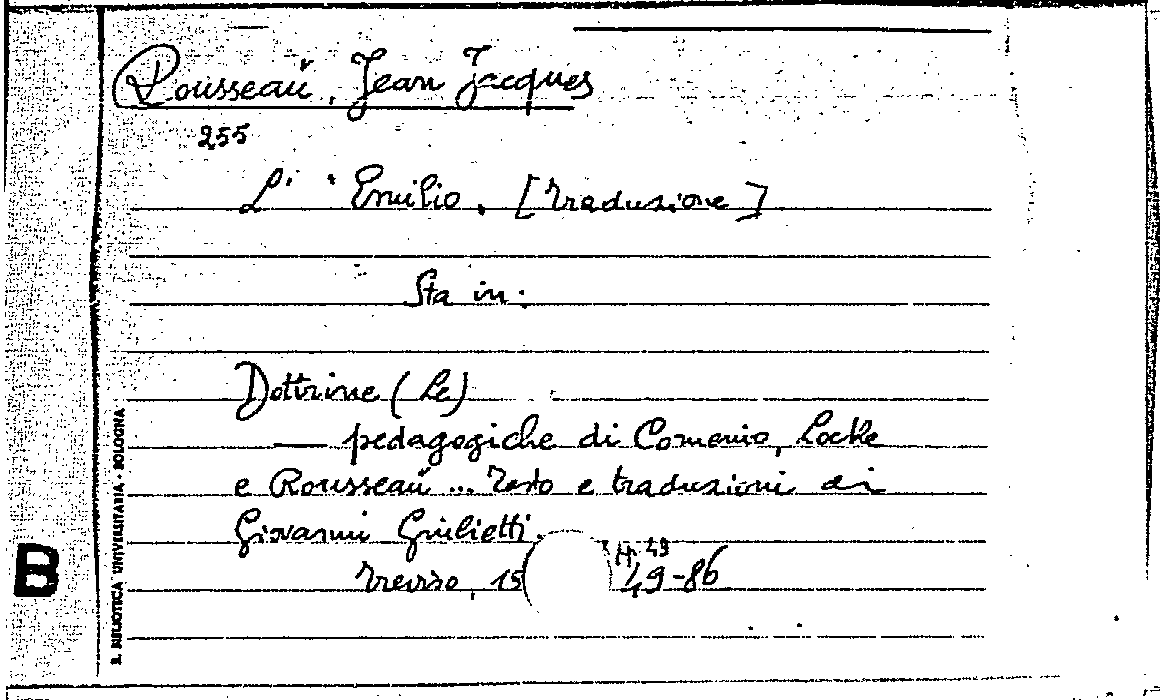 Rousseau, Jean Jacques
255
L' Emilio. [Traduzione]
Sta in:
Dottrine (Le)
— pedagogiche di Comenio, Locke
e Rousseau ... Testo e traduzioni di
Giovanni Giulietti.
Treviso, 15 49-86
B
R. BIBLIOTECA UNIVERSITARIA - BOLOGNA